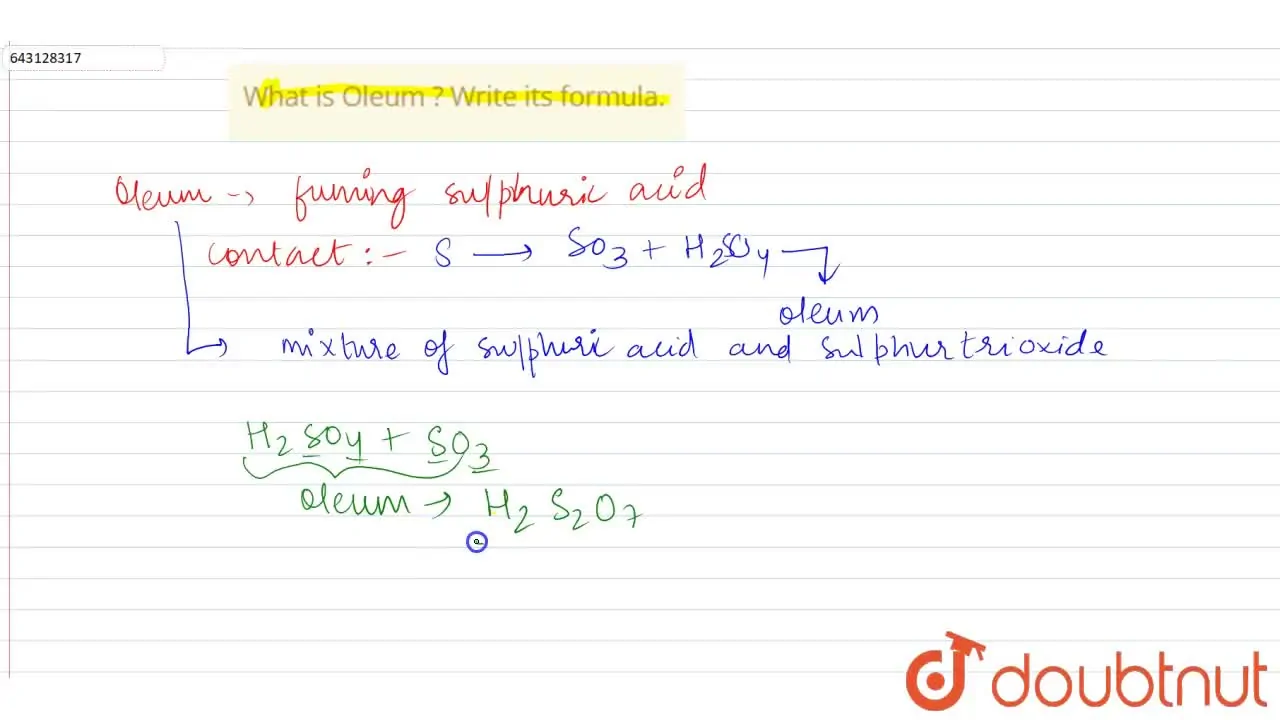 643128317
What is Oleum ? Write its formula.
Oleum → fuming sulphuric acid
contact :- S → SO3 + H2SO4
oleum
mixture of sulphuric acid and sulphurtrioxide
H2SO4 + SO3
oleum → H2S2O7
doubtnut